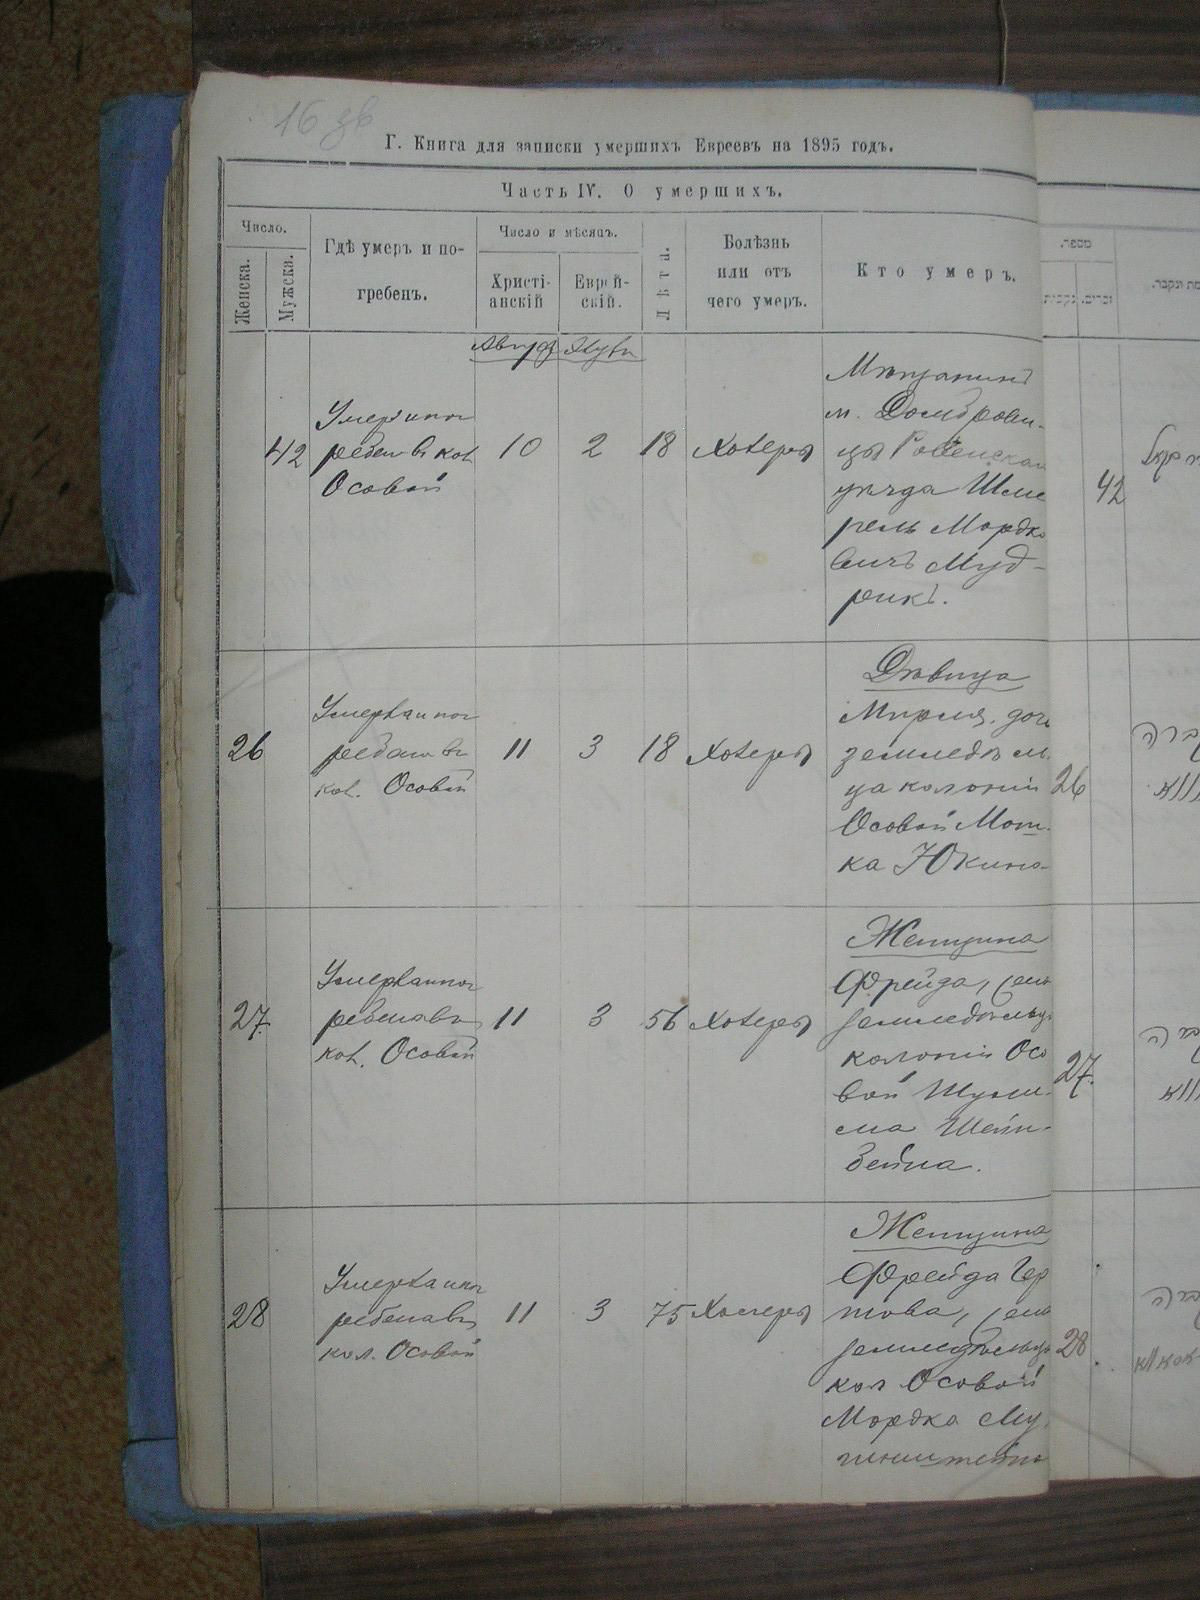 16 зв
Г. Книга для записки умершихъ Евреевъ на 1895 годъ.
Часть IV. О умершихъ.
Число.
Женска.
Мужска.
Гдѣ умеръ и по-
гребенъ.
Число и мѣсяцъ.
Христі-
анскій
Еврей-
скій.
Лѣта.
Болѣзнь
или отъ
чего умеръ.
Кто умеръ.
מספר.
נקבות
זכרים.
42
Умеръ и пог
ребен въ кол.
Осовой
10
2
18
Холеры
Мѣщанинъ
м. Домброви-
цы Ровенскаго
уѣзда Шме
рель Мордко
вичъ Муд-
рикъ.
42
26
Умерла и пог
ребена въ
кол. Осовой
11
3
18
Холеры
Дѣвица
Мирля, доч
земледѣль
ца колоніи
Осовой Мош-
ка Юкина-
26
27.
Умерла и пог
ребена въ
кол. Осовой
11
3
56
Холеры
Женщина
Фрейда, жена
земледѣльца
колоніи Осо
вой Шулы-
ма Шейн-
бейна.
27.
28
Умерла и пог
ребена въ
кол. Осовой
11
3
75
Холеры
Женщина
Фрейда Гер
това, жена
земледѣльца
кол Осовой
Мордка
28